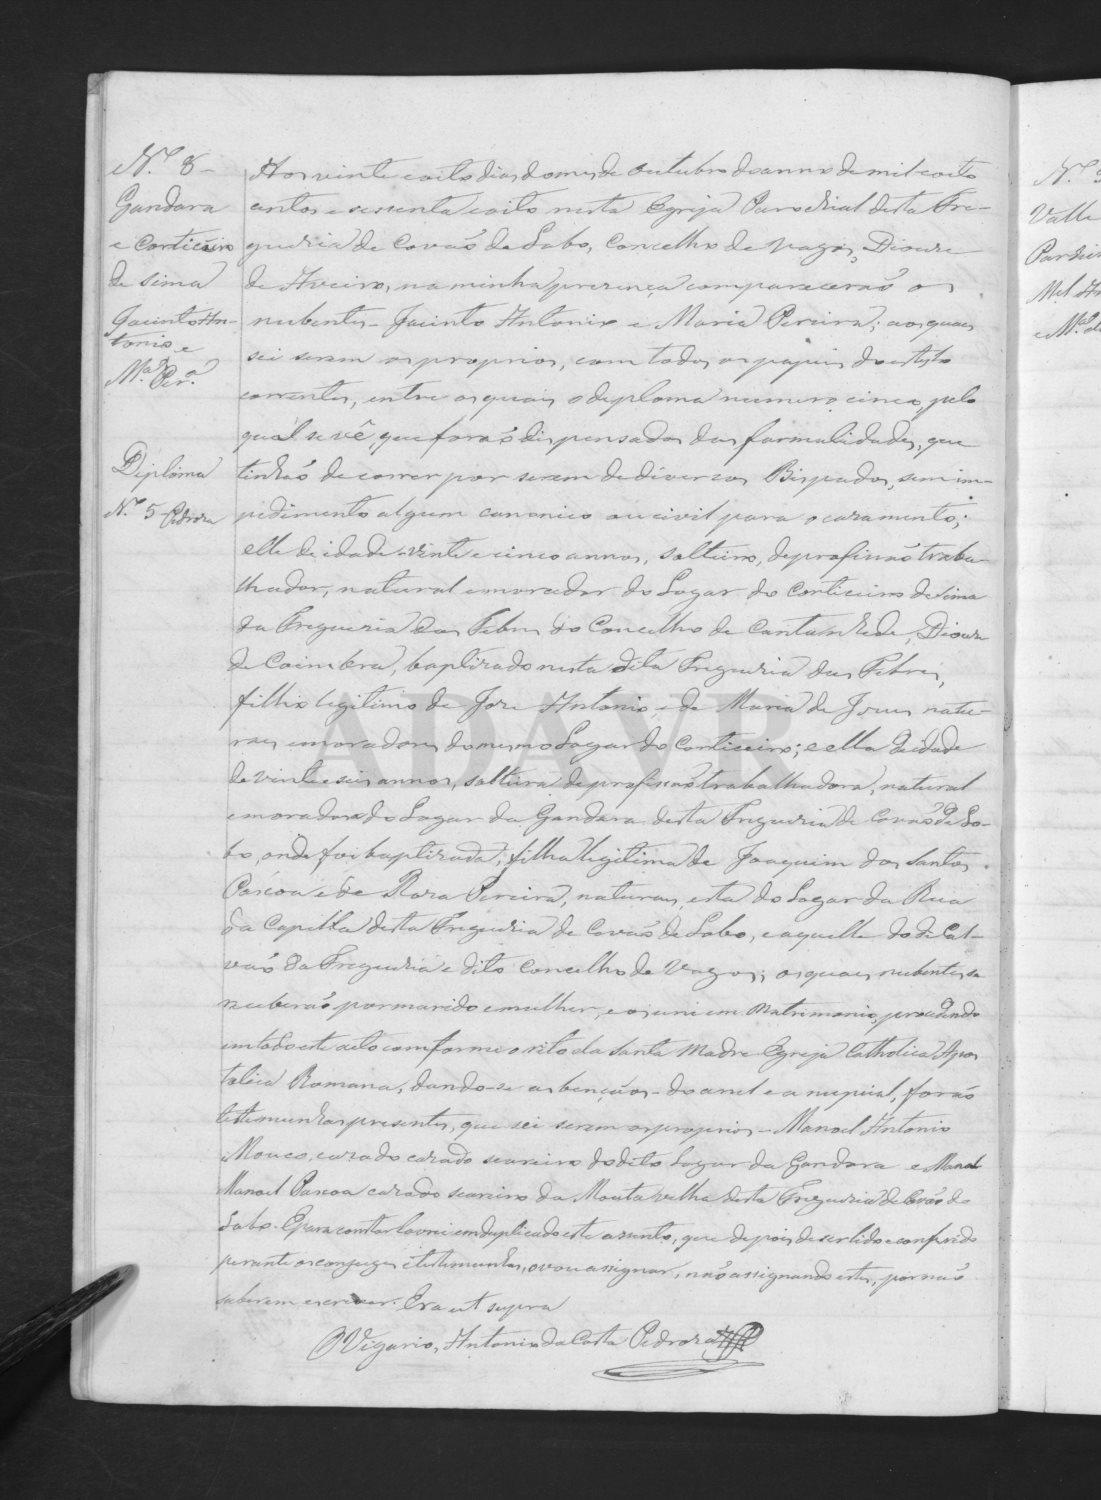 N.º 8-
Gandara
e Corticeiro
de sima
Jacinto An-
tonio, e
M.ª Per.ª
Diploma
N.º 5 Pedroza
Aos vinte e oito dias do mes de Outubro do anno de mil e oito
centos e sessenta e oito nesta Egreja Parochial desta Fre-
guezia de Covão de Lobo, Concelho de Vagos, Diocese
de Aveiro, na minha presença comparecerão os
nubentes - Jacinto Antonio e Maria Pereira; aos quaes
sei serem os proprios, com todos os papeis do estylo
correntes, entre os quaes o deploma numero cinco, pelo
qual se vê, que forão dispensados das formalidades, que
tinhão de correr por serem de diversos Bispados, sem im-
pedimento algum canonico ou civil para o casamento;
elle de idade vinte e cinco annos, solteiro, de profissão traba-
lhador, natural e morador do Lugar do Corticeiro de sima
da Freguezia das Febres do Concelho de Cantanhede, Diocese
de Coimbra, baptizado nesta dita Freguezia das Febres,
filho legitimo de Joze Antonio, e de Maria de Jesus natu-
raes e moradores do mesmo Lugar do Corticeiro; e ella de idade
de vinte e seis annos, solteira de profissão trabalhadora, natural
e moradora do Lugar da Gandara desta Freguezia de Covão de Lo-
bo, onde foi baptizada; filha legitima de Joaquim dos Santos
Pascoa e de Roza Pereira, naturaes, esta do Lugar da Rua
da Capella desta Freguezia de Covão de Lobo, e aquelle do de Cal-
vão da Freguezia e dito Concelho de Vagos; os quaes nubentes se
receberão por marido e mulher, e os uni em Matrimonio, procedendo
em todo este acto comforme o rito da Santa Madre Egreja Catholica Apos
tolica Romana, dando-se as bençãos - do anel e a nupcial, forão
testemunhas presentes, que sei serem os proprios - Manoel Antonio
Mouco, cazado seareiro do dito Lugar da Gandara e Manoel
Manoel Pascoa cazado seareiro da Mouta velha desta Freguezia de Covão de
Lobo. E para constar lavrei em duplicado este assento, que depois de ser lido e conferido
perante os conjuges e testemunhas, o vou assignar, não assignando estes, por não
saberem escrever. Era ut supra
O Vigario, Antonio da Costa Pedroza
N.º
Valle